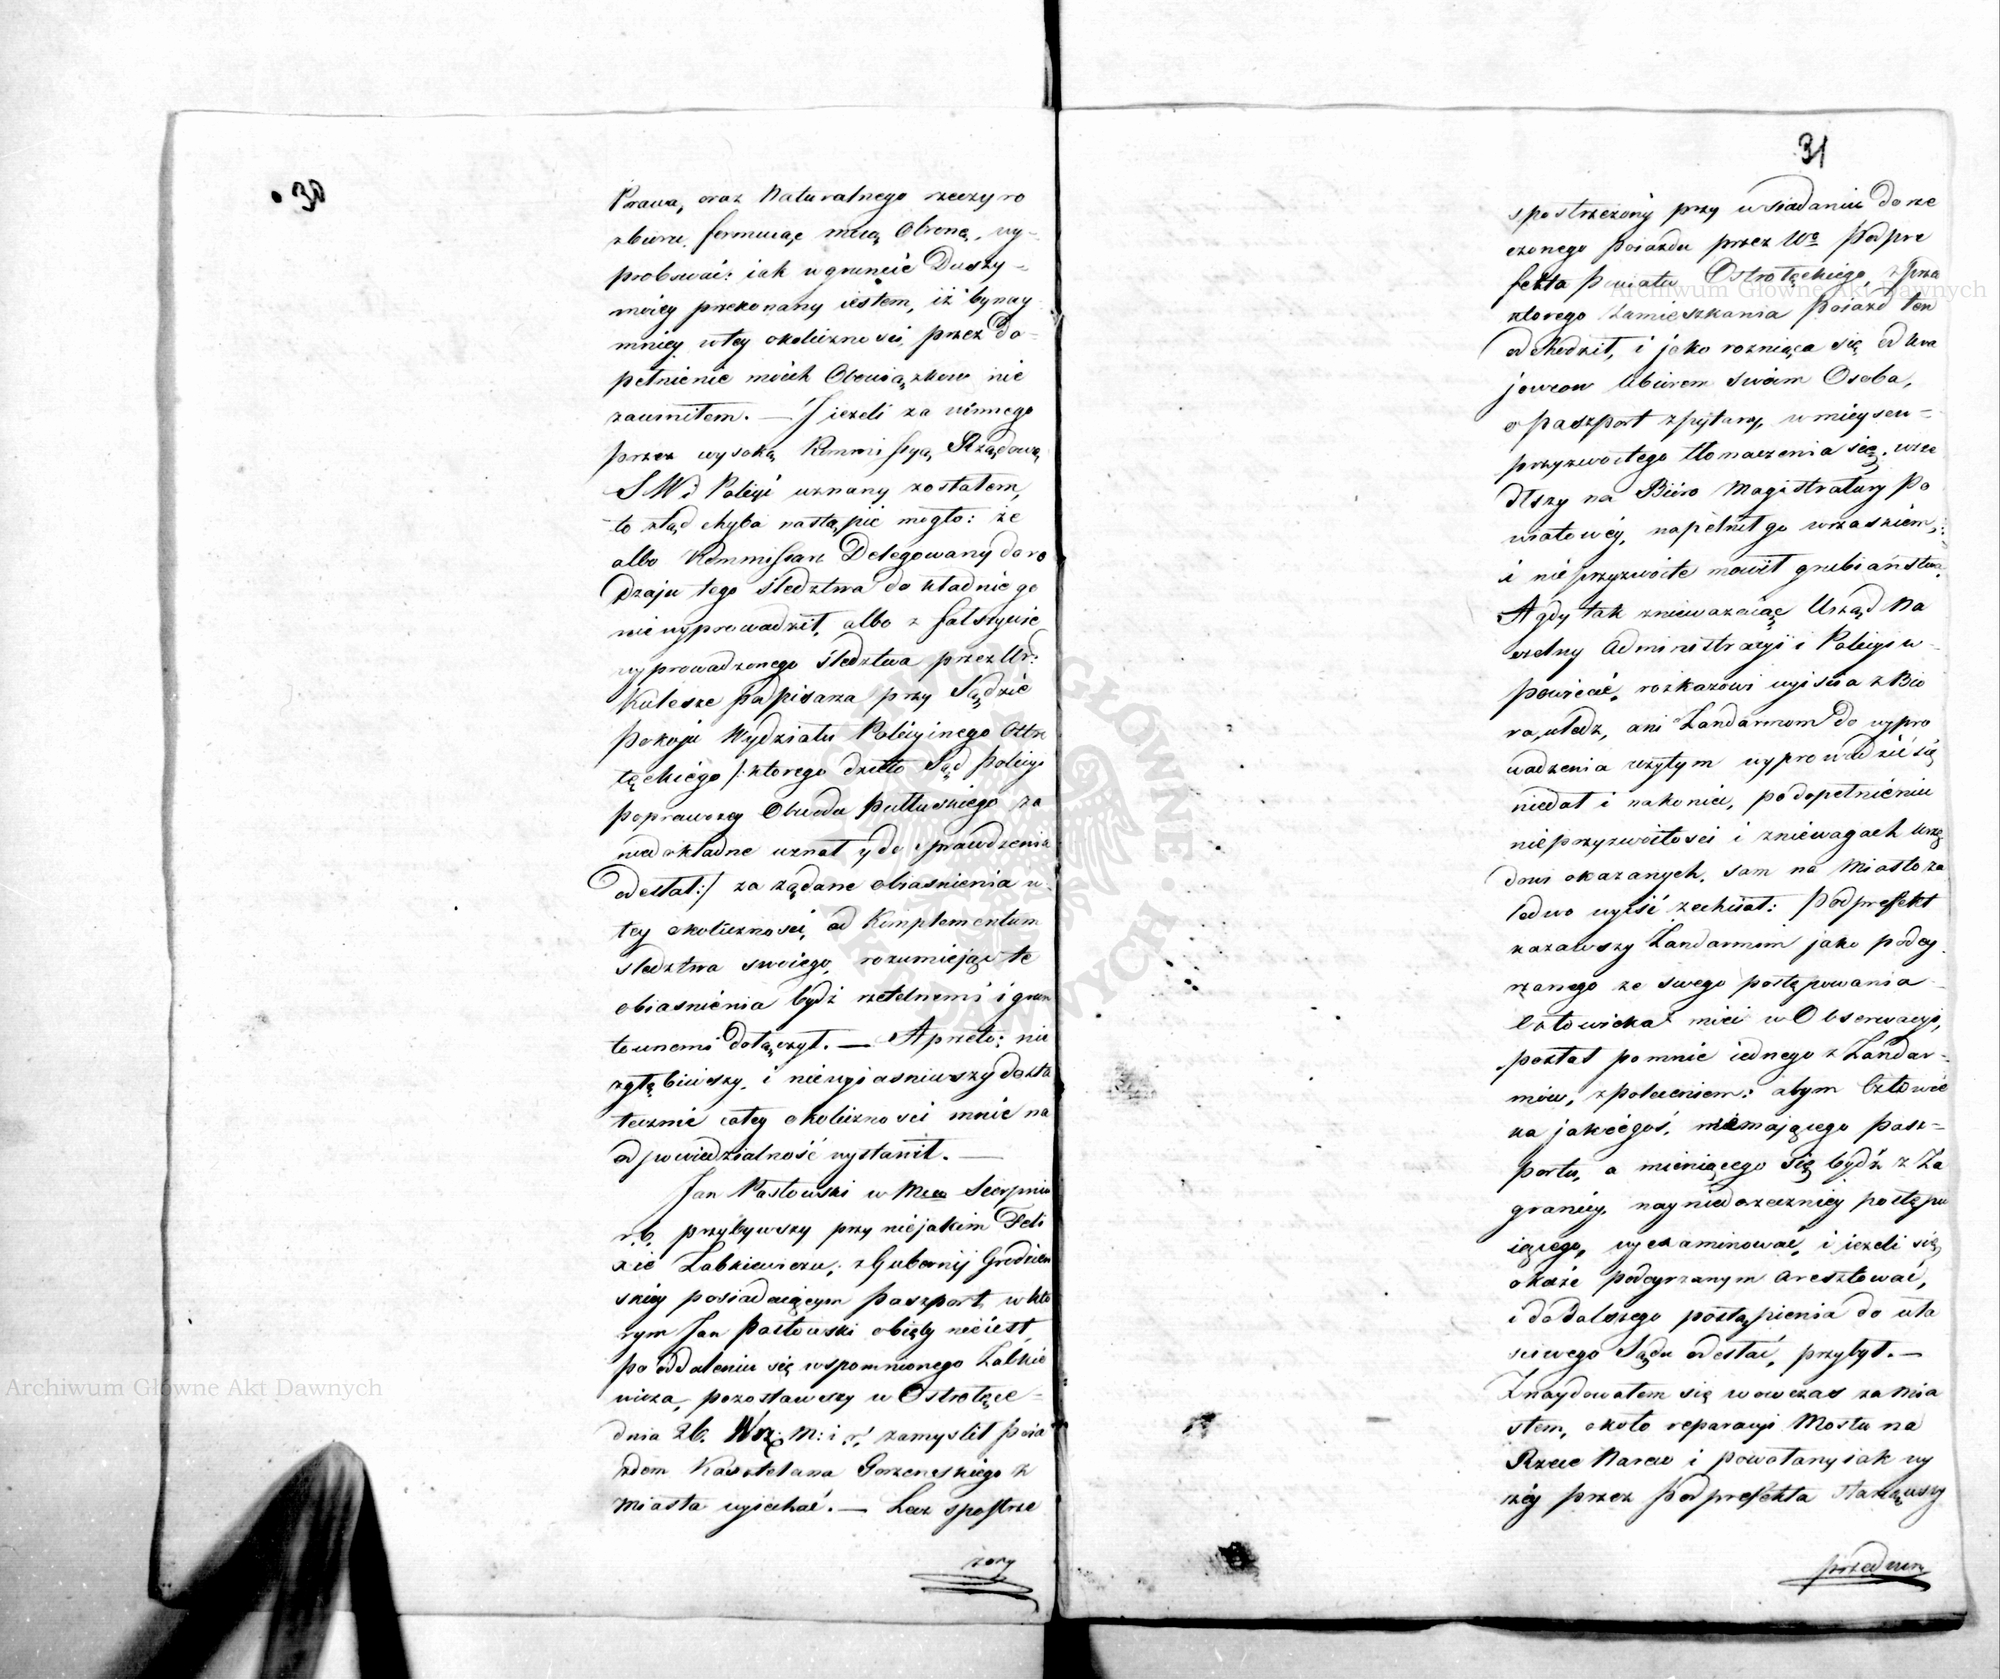 30
Prawa, oraz Naturalnego rzeczy ro
zbioru, formuiąc moią Obronę, wy-
probować: iak w gruncie Duszy-
moiey przekonany iestem, iż bynay
mniey w tey okoliczności, przez Do-
pełnienie moich Obowiązkow nie
zawiniłem. — Jieżeli za winnego
przez wysoką Kommissyą Rządową
S W i Policyi uznany zostałem,
to ztąd chyba nastąpić mogło: że
albo Kommissarz Delegowany do ro
dzaju tego śledztwa dokładnie go
nie wyprowadził, albo z fałszywie
wyprowadzonego śledztwa przez Ur:
Kulesze podpisarza przy Sądzie
Pokoju Wydziału Policyinego Ostro
łęckiego /: ktorego dzieło Sąd Policyi
Poprawczey Obwodu Pułtuskiego za
niedokładne uznał y do sprawdzenia
odesłał:/ za żądane obiasnienia w-
tey okoliczności, ad komplementum
sledztwa swoiego, rozumiejąc te
obiasnienia bydź rzetelnemi i grun
townemi dołączył. — A przeto: nie
zgłębiwszy, i niewyiasniwszy dosta
tecznie całey okoliczności mnie na
odpowiedzialność wystawił. —
Jan Pasłowski w Mcu Sierpniu
r. b. przybywszy przy niejakim Feli
xie Żabkiewiczu, z Gubernij Grodzien
skiey posiadaiącym Paszport, w kto
rym Jan Pasłowski obięty nieiest,
po oddaleniu się wspomnionego Żabkie
wicza, pozostawszy w Ostrołęce-
dnia 26. Wrz: M: i r: zamyslił Poia
zdem Kasztelana Gorzenskiego z
Miasta wyiechać. — Lecz spostrze
żony
31
spostrzeżony przy wsiadaniu do rze
czonego Poiazdu przez Wo Podpre
fekta Powiatu Ostrołęckiego, z przed
ktorego zamieszkania Poiazd ten
odchodził, i jako rozniąca się od kra
jowcow Ubiorem swoim Osoba,
o paszport zpytany, w mieyscu-
przyzwoitego tłomaczenia się, wsze
dłszy na Biuro Magistratury Po
wiatowey, napełnił go wrzaskiem,
i nieprzyzwoite mowił grubiaństwa.
A gdy tak znieważaiąc Urząd Na
czelny Administracyi i Policyi w-
powiecie, rozkazowi wyiścia z Biu
ra, uledz, ani Żandarmom do wypro
wadzenia użytym wyprowadzić się
niedał i nakoniec, po dopełnieniu
nieprzyzwoitości i zniewagach Urzę
dowi okazanych, sam na Miasto za
ledwo wyiść zechciał: Podprefekt
kazawszy Żandarmom jako podey
rzanego ze swego postępowania
Człowieka mieć w Obserwacyi,
posłał po mnie iednego z Żandar-
mow, z poleceniem: abym Człowie
ka jakiegoś, niemającego Pasz-
portu, a mieniącego się bydź z Za
granicy, nayniedorzeczniey postępu
iącego, wyexaminował, i ieżeli się
okaże podeyrzanym aresztować,
i do Dalszego postąpienia do wła
sciwego Sądu odesłać, przybył. —
Znaydowałem się wowczas za Mia
stem, około reparacyi Mostu na
Rzece Narew i powołany iak wy
żey przez Podprefekta stanąwszy
przed nim
Archiwum Główne Akt Dawnych
Archiwum Główne Akt Dawnych
ARCHIWUM GŁÓWNE • AKT DAWNYCH •